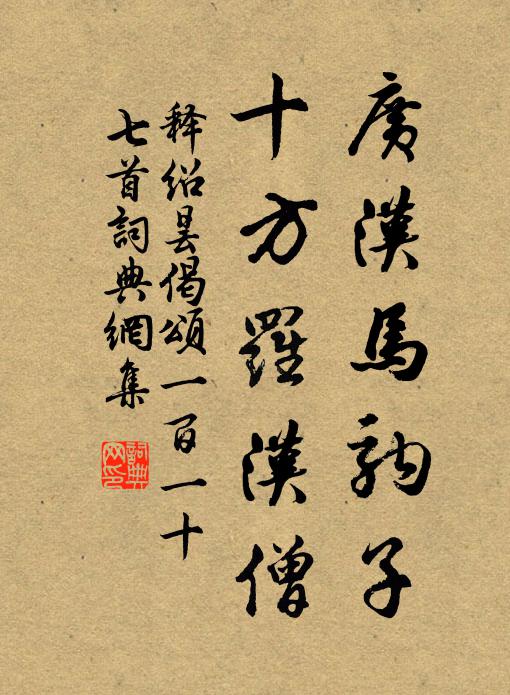 廣漢馬駒子
十方羅漢僧
释紹曇偈頌一百一十
七首詞典網集
詞典網印